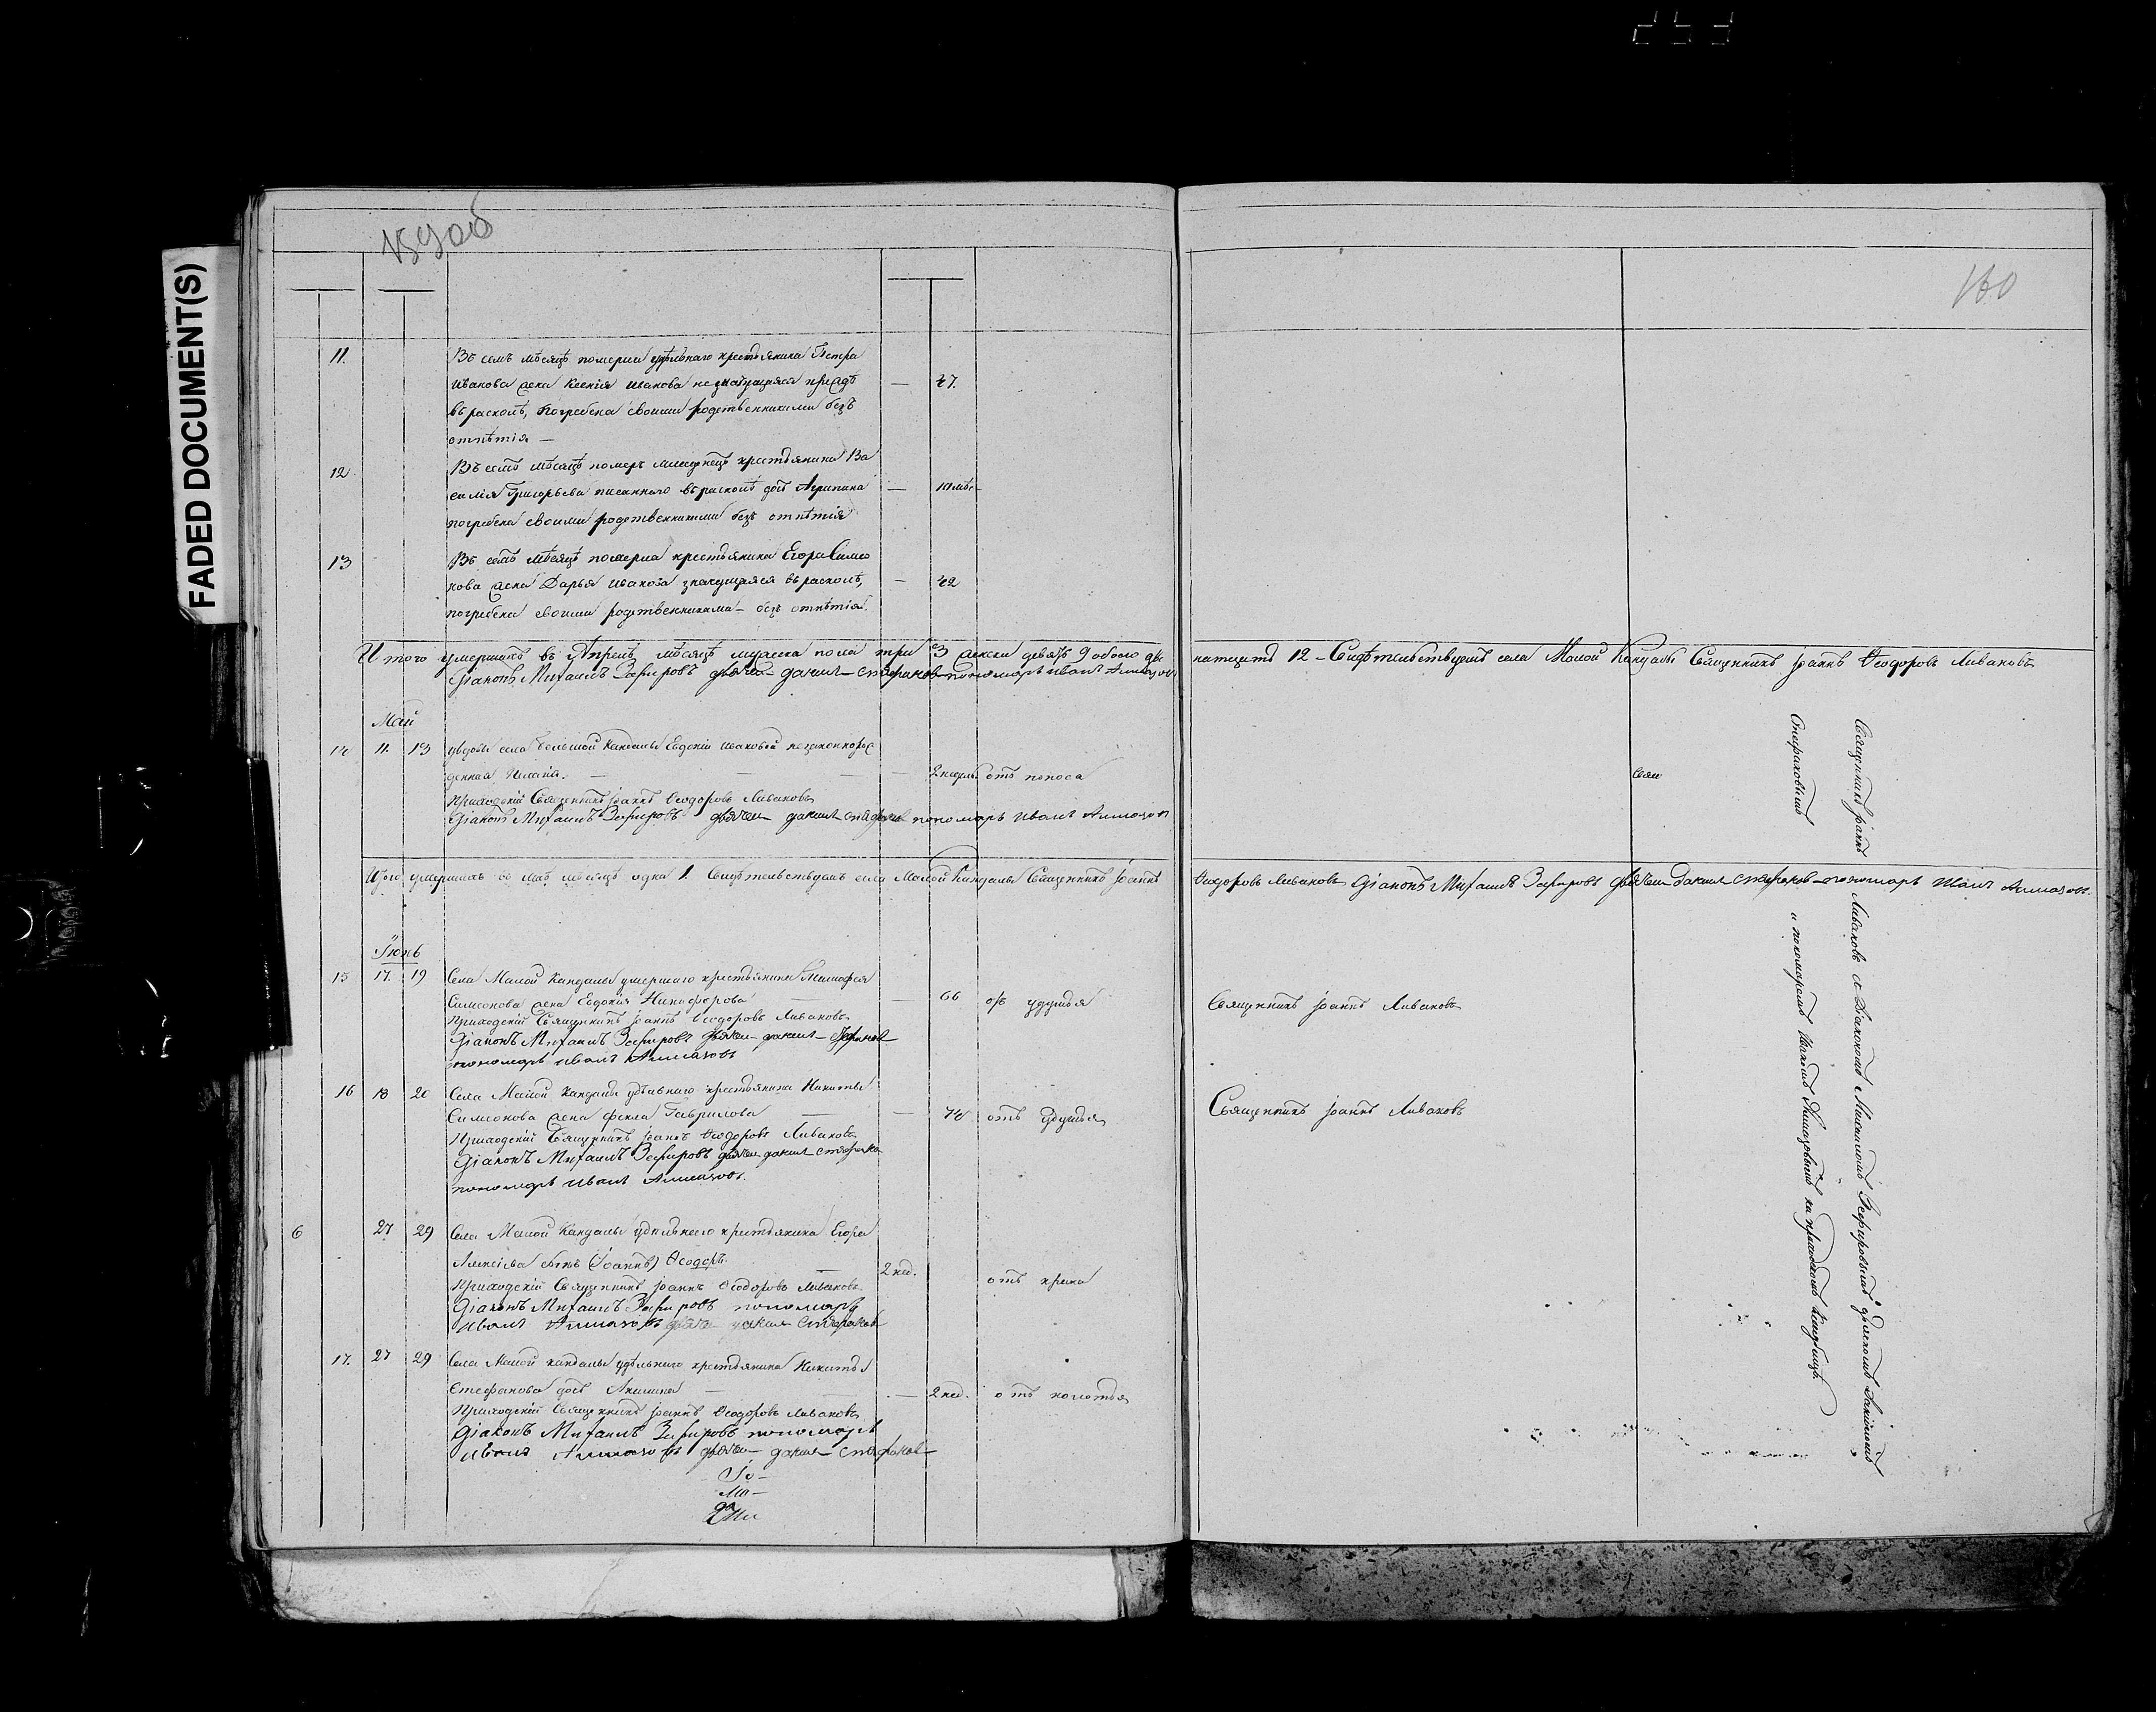 159об
160
FADED DOCUMENT(S)
11. Въ семъ мѣсяцѣ померла удѣльнаго крестьянина Петра
Иванова жена Ксенія Иванова — 47.
въ расколѣ, погребена своими родственниками безъ
отпѣтія —
12. Въ семъ мѣсяцѣ померъ младенецъ крестьянина Ва
силія Григорьева писаннаго въ расколѣ дочь Агрипина — 10 мѣс
погребена своими родственниками безъ отпѣтія
13 Въ семъ мѣсяцѣ померла крестьянина Егора Симео
нова жена Дарья Иванова значущаяся въ расколѣ, — 42
погребена своими родственниками — безъ отпѣтія.
Итого умершихъ въ Апрѣлѣ мѣсяцѣ мужеска пола три 3 женска девять 9 обоего две
надцать 12 — Свидѣтельствуемъ села Малой Кандалы Священникъ Іоаннъ Ѳеодоровъ Ливановъ
Діаконъ Михаилъ Зефировъ дьячекъ Данилъ Стефановъ пономарь Иванъ Алмазовъ
Май
14 11. 13 вдовы села большой Кандалы Евдокіи Ивановой незаконнорож
денная — — — 2 недѣл. отъ поноса
Приходскій Священникъ Іоаннъ Ѳеодоровъ Ливановъ
Діаконъ Михаилъ Зефировъ дьячекъ Данилъ Стефановъ пономарь Иванъ Алмазовъ
Итого умершихъ въ маѣ мѣсяцѣ одна 1. Свидѣтельствуемъ села Малой Кандалы Священникъ Іоаннъ
Ѳеодоровъ Ливановъ Діаконъ Михаилъ Зефировъ дьячекъ Данилъ Стефановъ пономарь Иванъ Алмазовъ.
Іюнь
15 17. 19 Села Малой Кандалы умершаго крестьянина Тимофея
Симеонова жена Евдокія Никифорова — 66 отъ удушья
Священникъ Іоаннъ Ливановъ
Приходскій Священникъ Іоаннъ Ѳеодоровъ Ливановъ
Діаконъ Михаилъ Зефировъ дьячекъ Данилъ Стефановъ
пономарь Иванъ Алмазовъ
16 18 20 Села Малой Кандалы удѣльнаго крестьянина Никиты
Симеонова жена Фекла Гаврилова — — отъ удушья
Священникъ Іоаннъ Ливановъ
Приходскій Священникъ Іоаннъ Ѳеодоровъ Ливановъ
Діаконъ Михаилъ Зефировъ дьячекъ Данилъ Стефановъ
пономарь Иванъ Алмазовъ.
6 27 29 Села Малой Кандалы удѣльнаго крестьянина Егора
Алексѣева сынъ (Іоаннъ) Ѳеодоръ. — 2 нед. отъ крика
Приходскій Священникъ Іоаннъ Ѳеодоровъ Ливановъ
Діаконъ Михаилъ Зефировъ пономарь
Иванъ Алмазовъ дьячекъ Данилъ Стефановъ
17. 27 29 Села Малой Кандалы удѣльнаго крестьянина Никиты
Стефанова дочь Акилина — — 2 нед. отъ колотья
Приходскій Священникъ Іоаннъ Ѳеодоровъ Ливановъ
Діаконъ Михаилъ Зефировъ пономарь
Иванъ Алмазовъ дьячекъ Данилъ Стефановъ
Священникъ Іоаннъ Ливановъ съ Діакономъ Михаиломъ Зефировымъ дьячкомъ Даніиломъ
Стефановымъ и пономаремъ Иваномъ Алмазовымъ на приходскомъ кладбищѣ